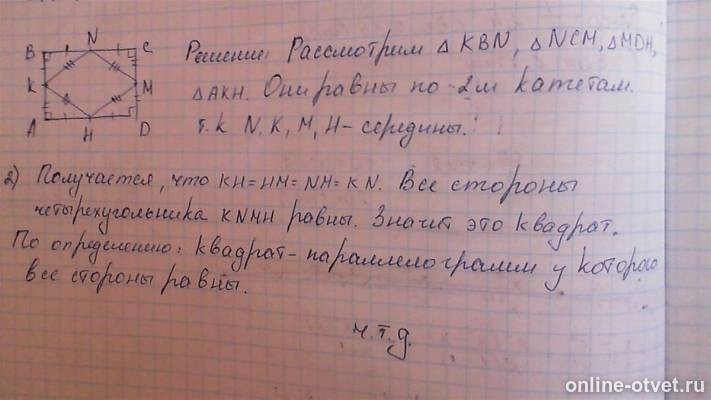 B N C
K M
A H D
Решение: Рассмотрим △ KBN, △ NCM, △ MDH,
△ AKH. Они равны по 2м катетам.
т.к N, K, M, H – середины.
2) Получается, что KH = HM = NM = KN. Все стороны
четырехугольника KNMH равны. Значит это квадрат.
По определению: квадрат – параллелограмм у которого
все стороны равны.
ч.т.д.
online-otvet.ru